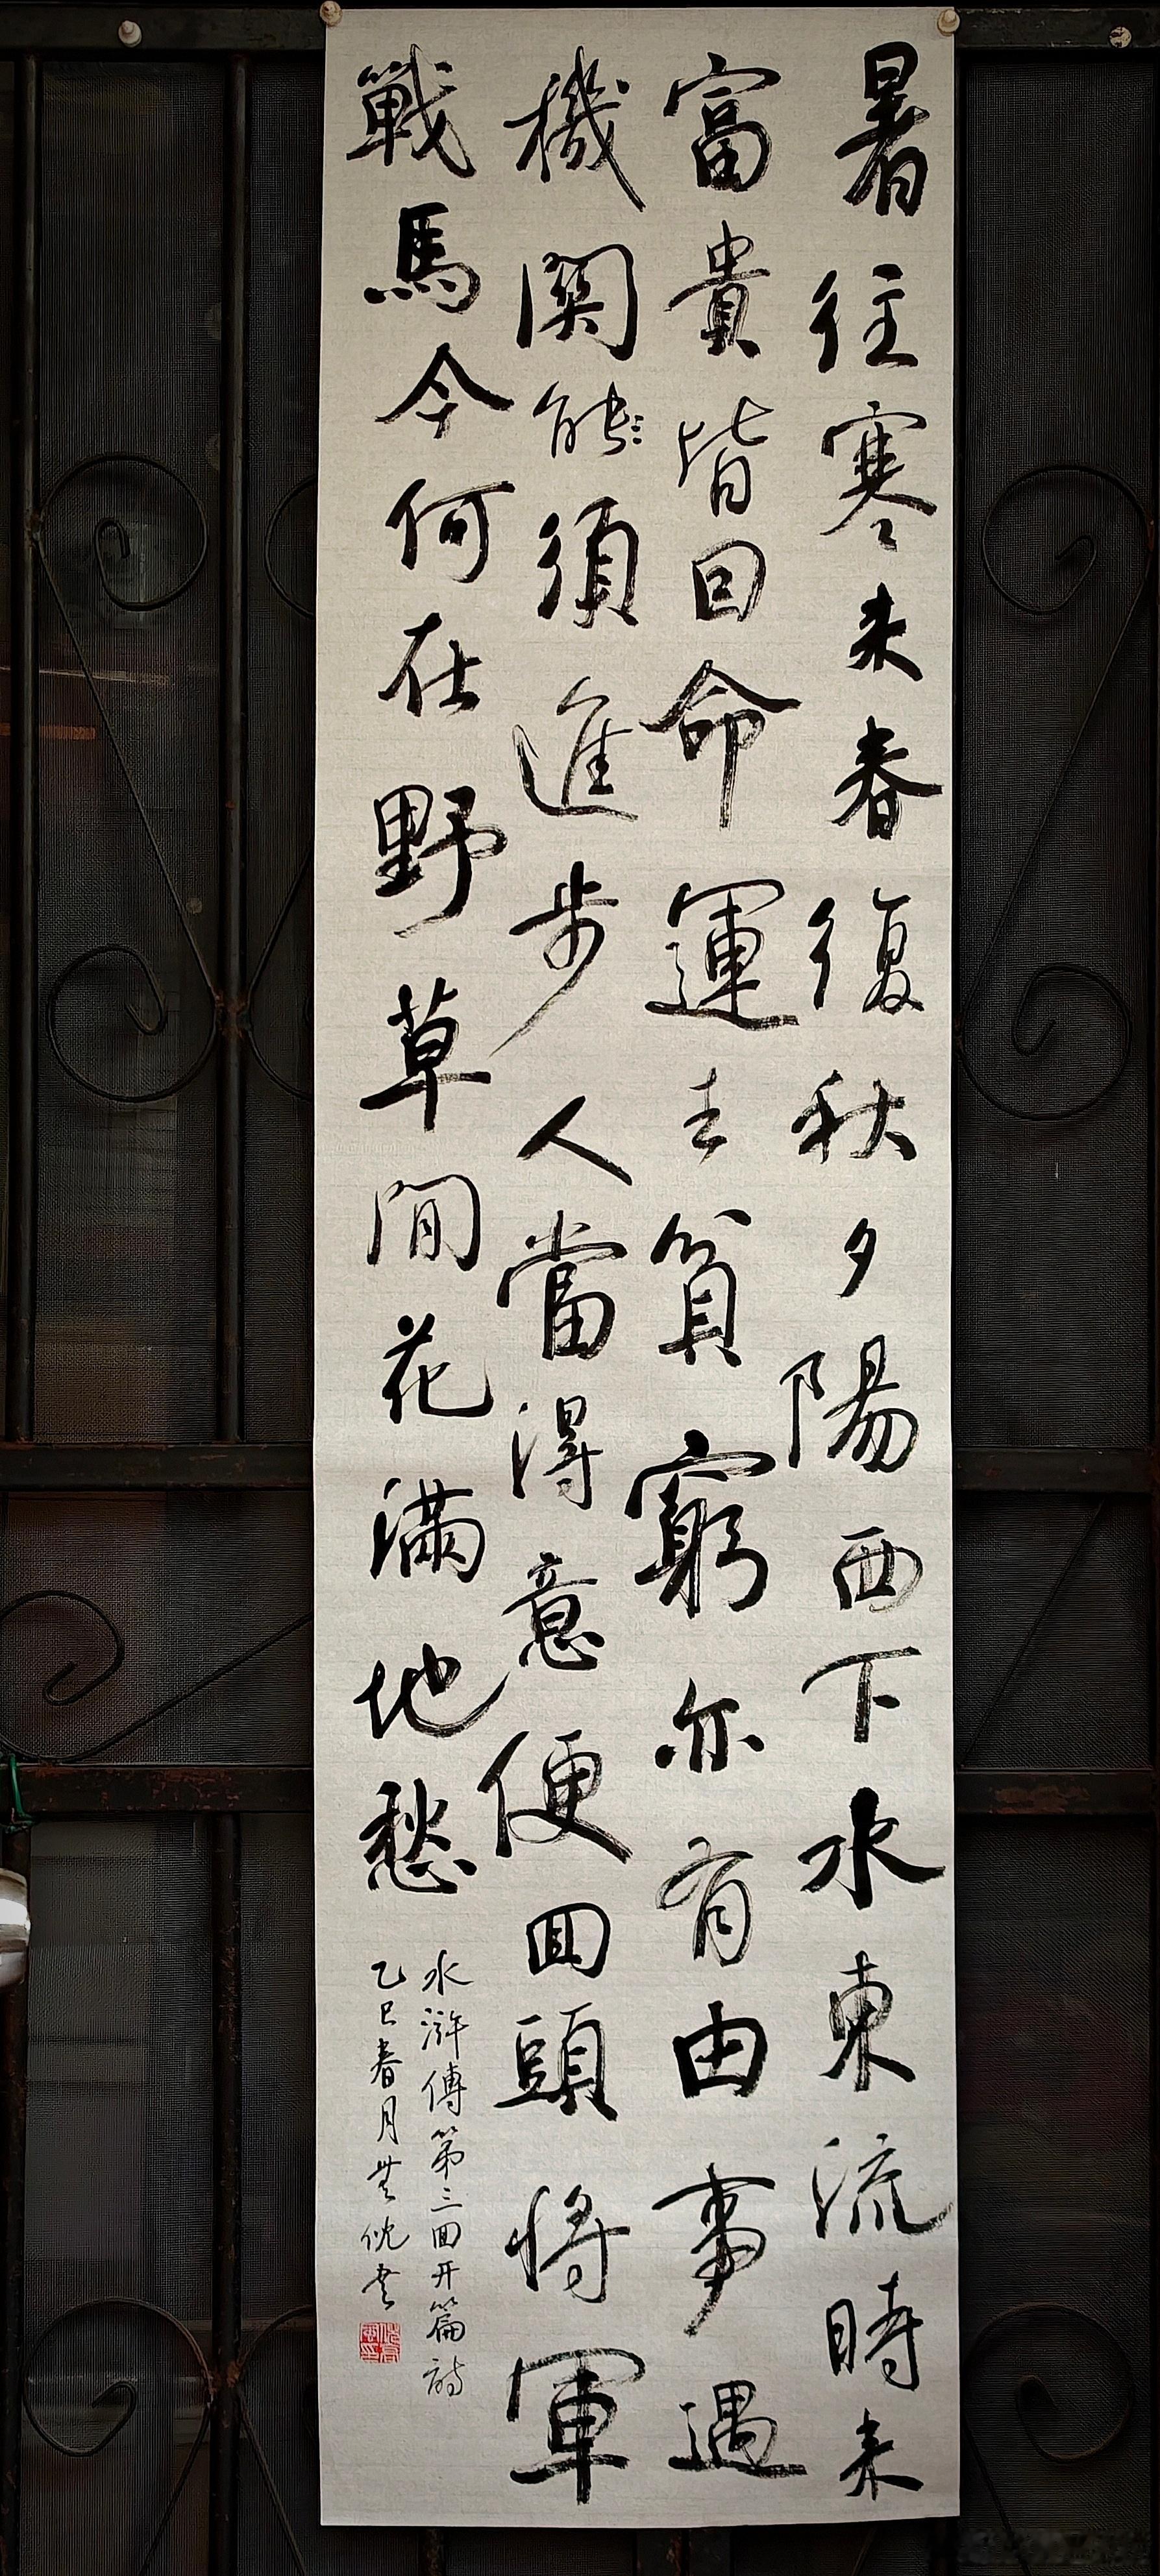 暑往寒来春復秋夕陽西下水東流時来
富貴皆因命運去貧窮亦有由事遇
機関能須進步人當得意便回頭將軍
戰馬今何在野草閒花滿地愁
水滸傳第三回开篇詩
乙巳春月